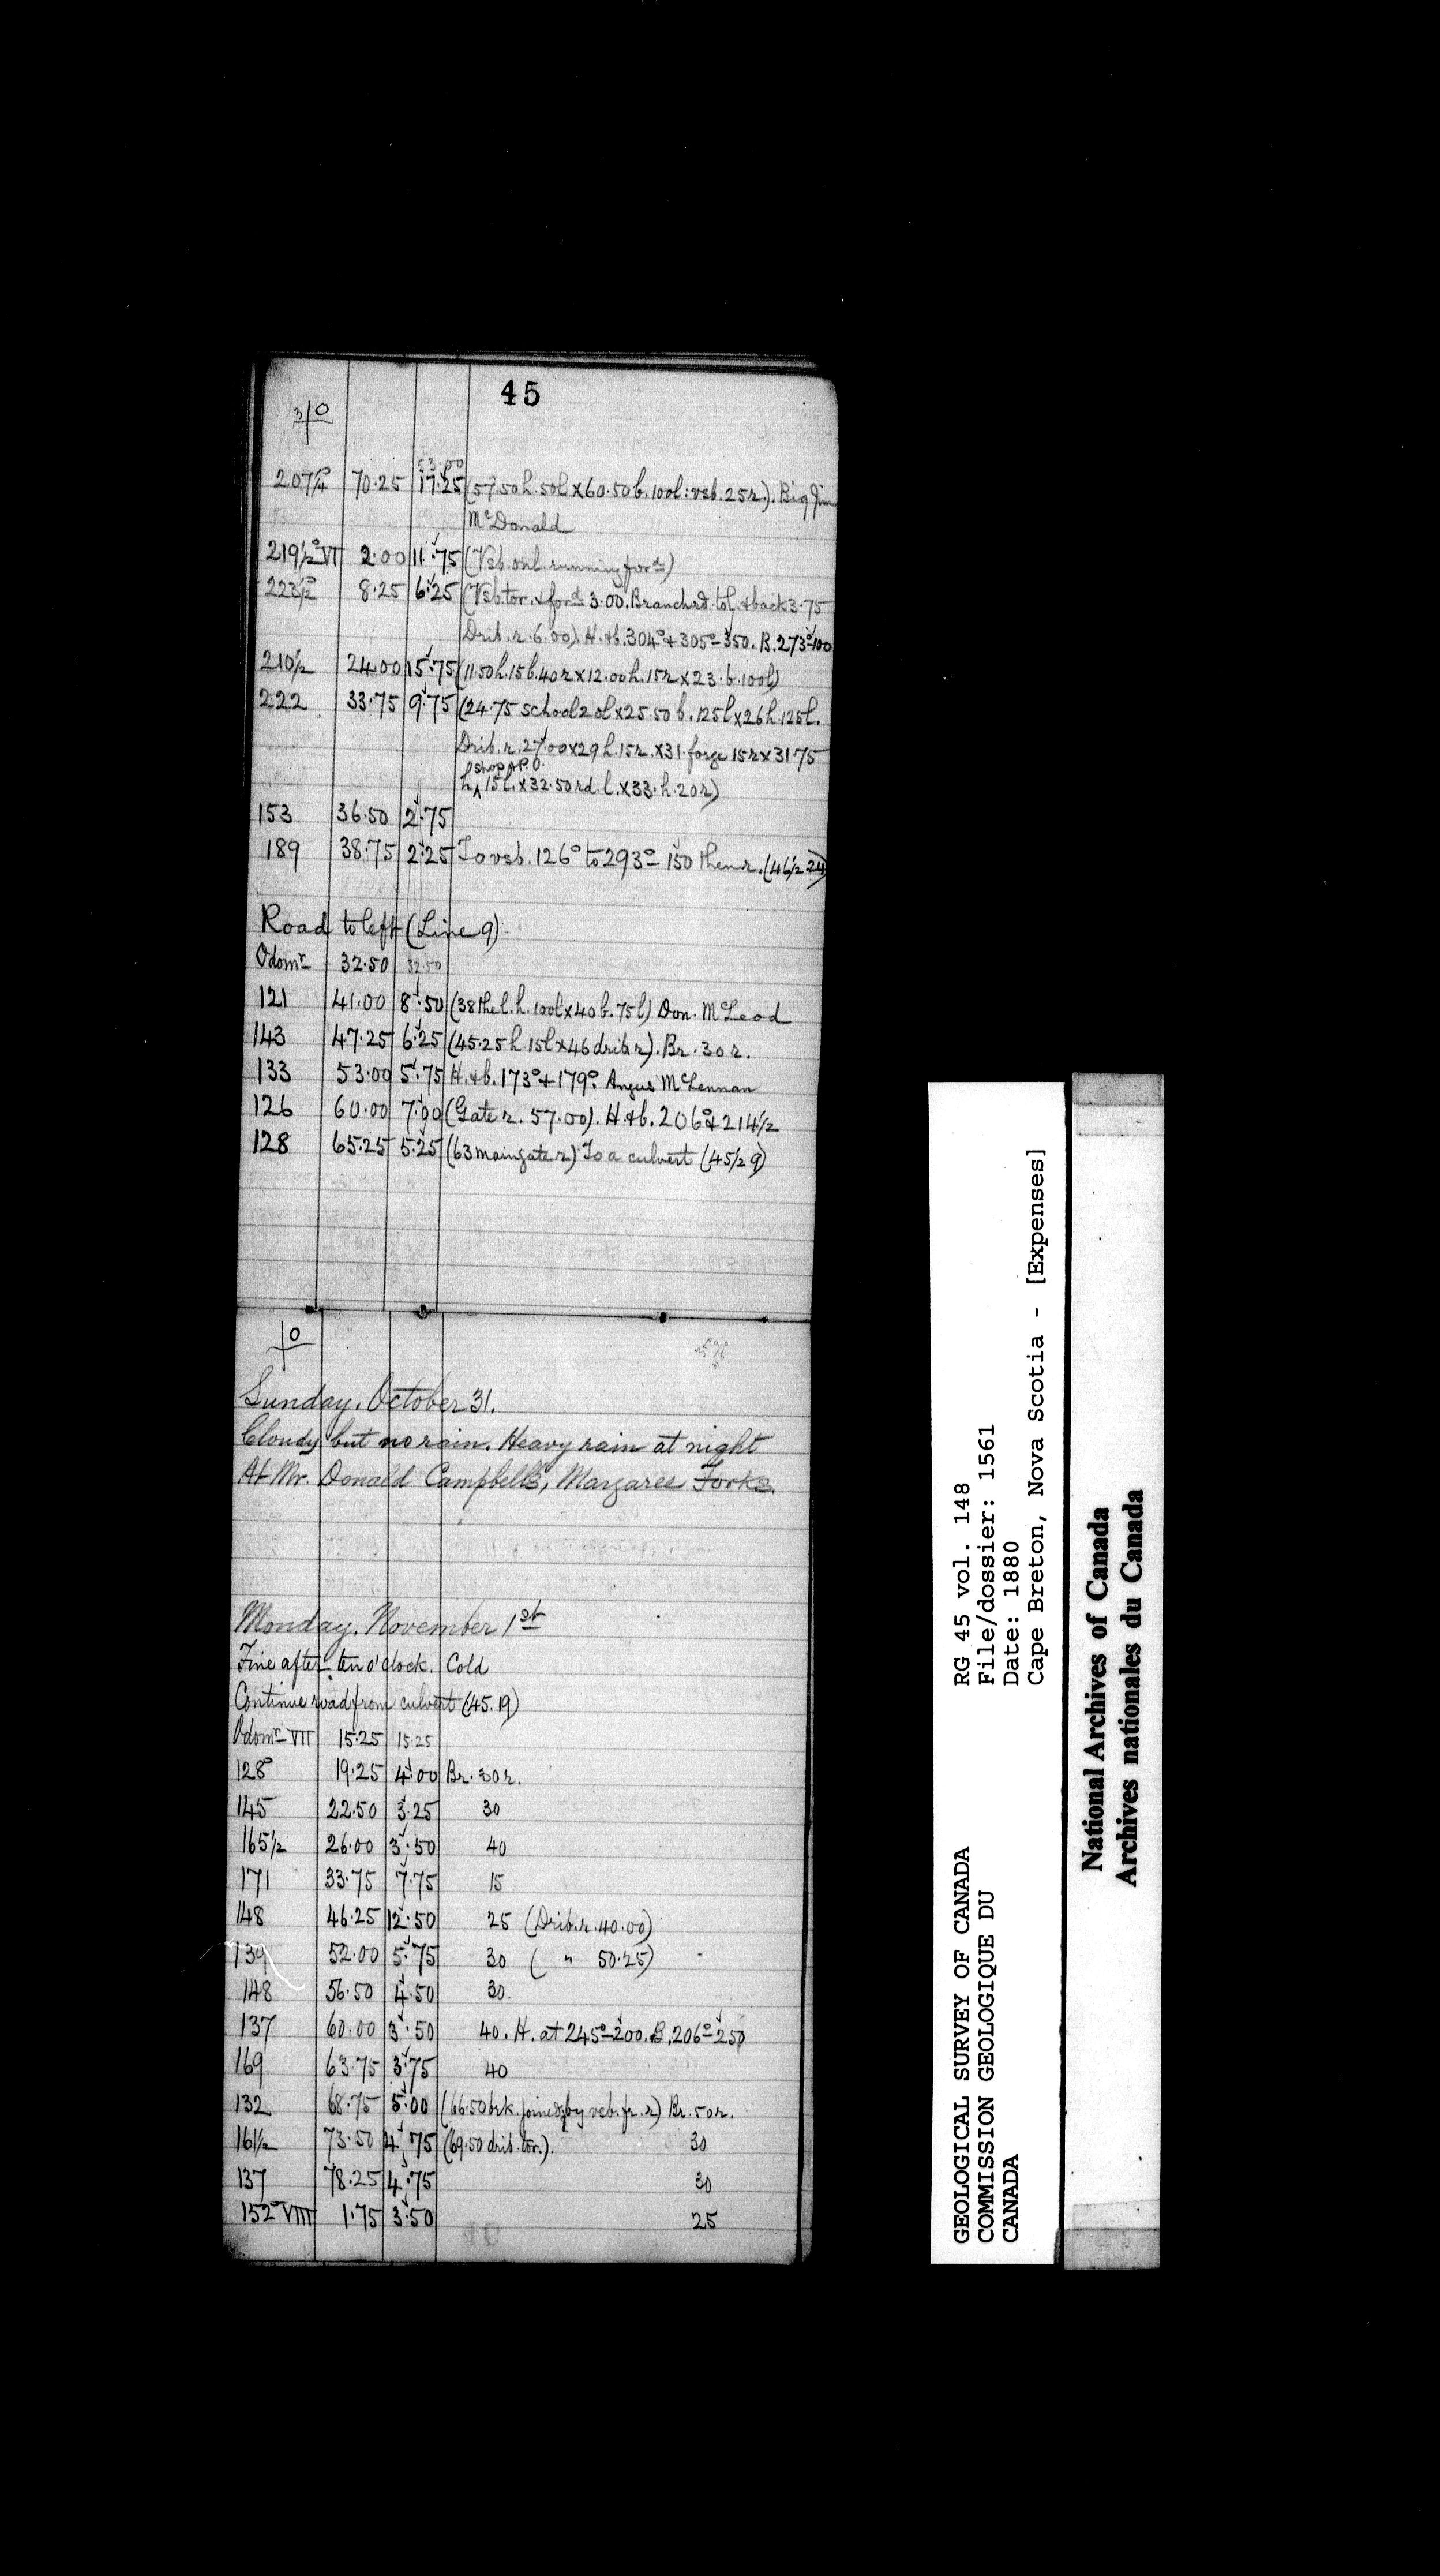 45
53.00
207¼° 70.25 17.25 (57.50 h. 50l x 60.50 b. 100l : vsb. 25r.). Big Jim
McDonald
219½° VI 2.00 11.75 (Vsb. on l. running for^d)
223½° 8.25 6.25 (Vsb. to r. & for^d 3.00. Branch rd. to l. & back 3.75
Drib. r. 6.00). H. & b. 304° & 305° – 350. B. 273° – 100
210½ 24.00 15.75 (11.50 h. 15 b. 40r x 12.00 h. 15r x 23. b. 100l)
222 33.75 9.75 (24.75 school 20l x 25.50 b. 125l x 26 h. 125l.
Drib. r. 27.00 x 29 h. 15r. x 31. forge 15r x 31.75
shop & P.O.
h 15l. x 32.50 rd. l. x 33. h. 20r)
153 36.50 2.75
189 38.75 2.25 To vsb. 126° to 293° – 150 then r. (46½ 24)
Road to left (Line 9)
Odom^r 32.50 32.50
121 41.00 8.50 (38 the l. h. 100l x 40 b. 75l) Don. McLeod
143 47.25 6.25 (45.25 h. 15l x 46 drib. r). Br. 30 r.
133 53.00 5.75 H. & b. 173° & 179°. Angus McLennan
126 60.00 7.00 (Gate r. 57.00). H. & b. 206° & 214½
128 65.25 5.25 (63 main gate r) To a culvert (45½ 9)
Sunday. October 31.
Cloudy but no rain. Heavy rain at night
At Mr. Donald Campbell's, Margaree Forks.
Monday. November 1st
Fine after ten o'clock. Cold
Continue road from culvert (45.19)
Odom^r VII 15.25 15.25
128° 19.25 4.00 Br. 30 r.
145 22.50 3.25 30
165½ 26.00 3.50 40
171 33.75 7.75 15
148 46.25 12.50 25 (Drib. r. 40.00)
139 52.00 5.75 30 ( " 50.25)
148 56.50 4.50 30
137 60.00 3.50 40. H. at 245° – 200. B. 206° – 250
169 63.75 3.75 40
132 68.75 5.00 (66.50 brk. joined by vsb. fr. r) Br. 50 r.
161½ 73.50 4.75 (69.50 drib. to r.) 30
137 78.25 4.75 30
152° VIII 1.75 3.50 25
GEOLOGICAL SURVEY OF CANADA
COMMISSION GEOLOGIQUE DU
CANADA
RG 45 vol. 148
File/dossier: 1561
Date: 1880
Cape Breton, Nova Scotia - [Expenses]
National Archives of Canada
Archives nationales du Canada